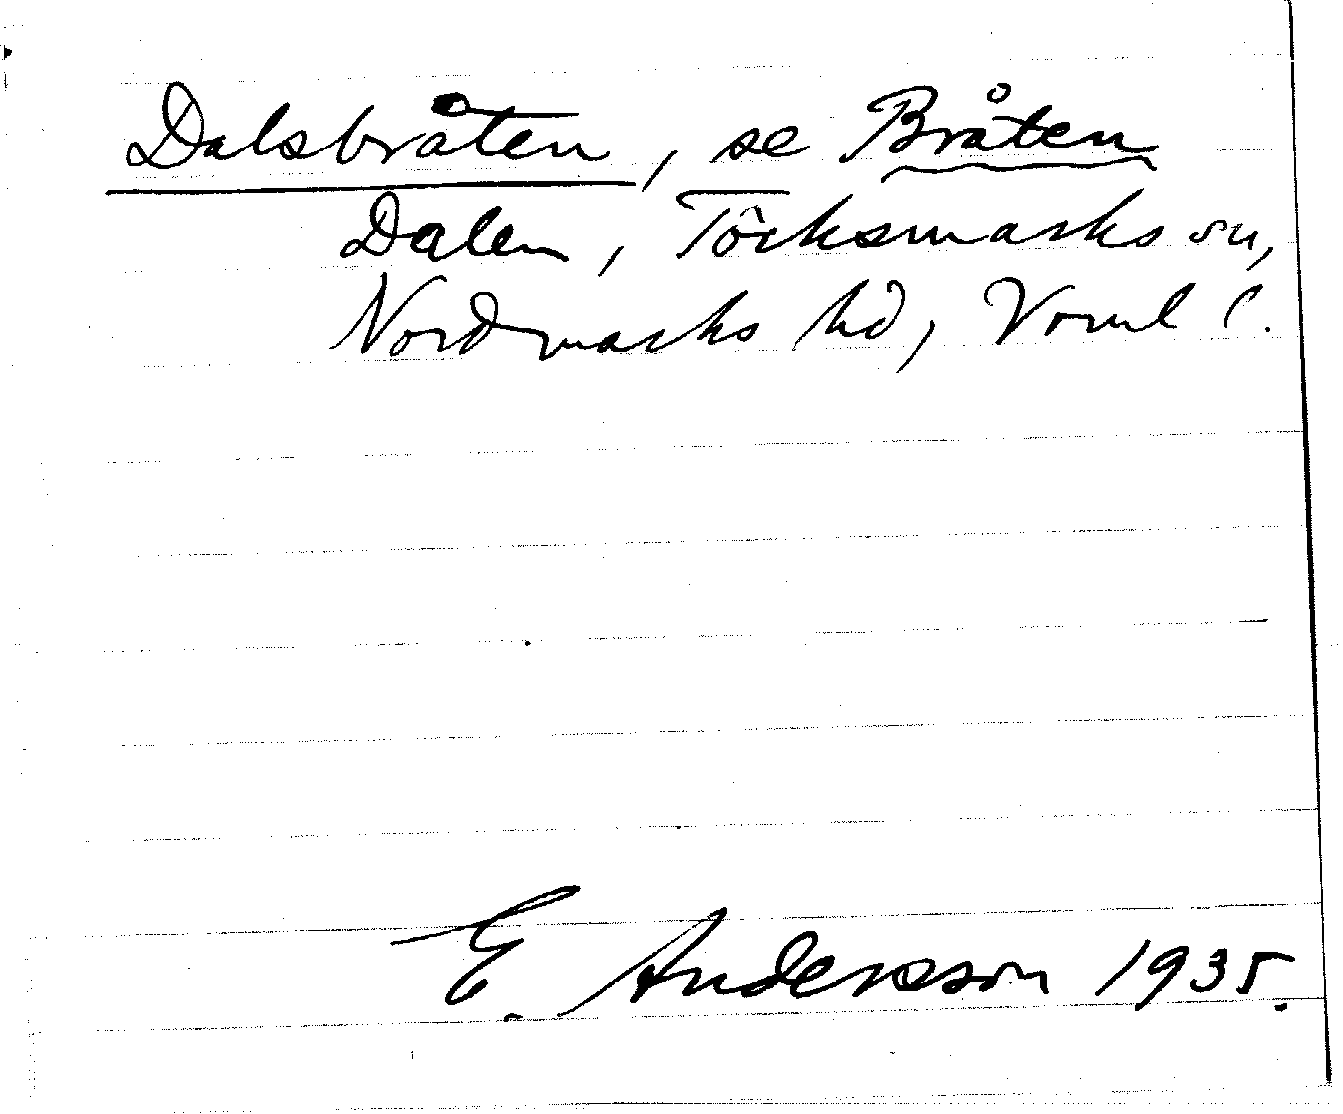 Dalsbråten, se Bråten
Dalen, Töcksmarks sn,
Nordmarks hd, Värml l.
E. Andersson 1935.